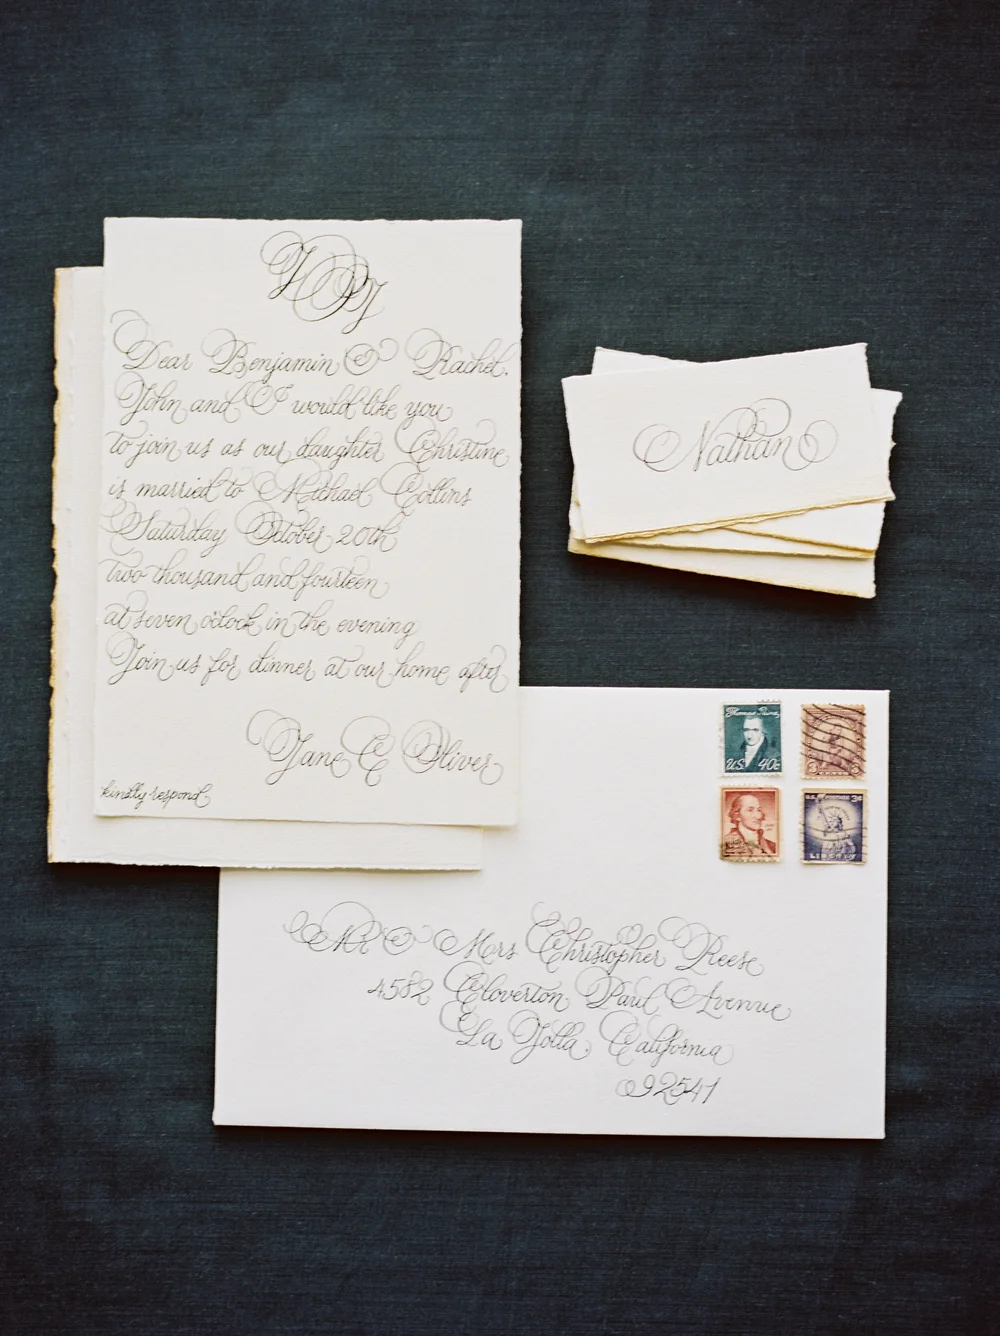 Dear Benjamin & Rachel,
John and I would like you
to join us as our daughter Christine
is married to Michael Collins
Saturday October 20th
two thousand and fourteen
at seven o'clock in the evening
Join us for dinner at our home after
Jane E Oliver
kindly respond
Nathan
Thomas Paine
U.S. 40c
3c
LIBERTY
Mr & Mrs Christopher Reese
4582 Cloverton Paul Avenue
La Jolla, California
92541